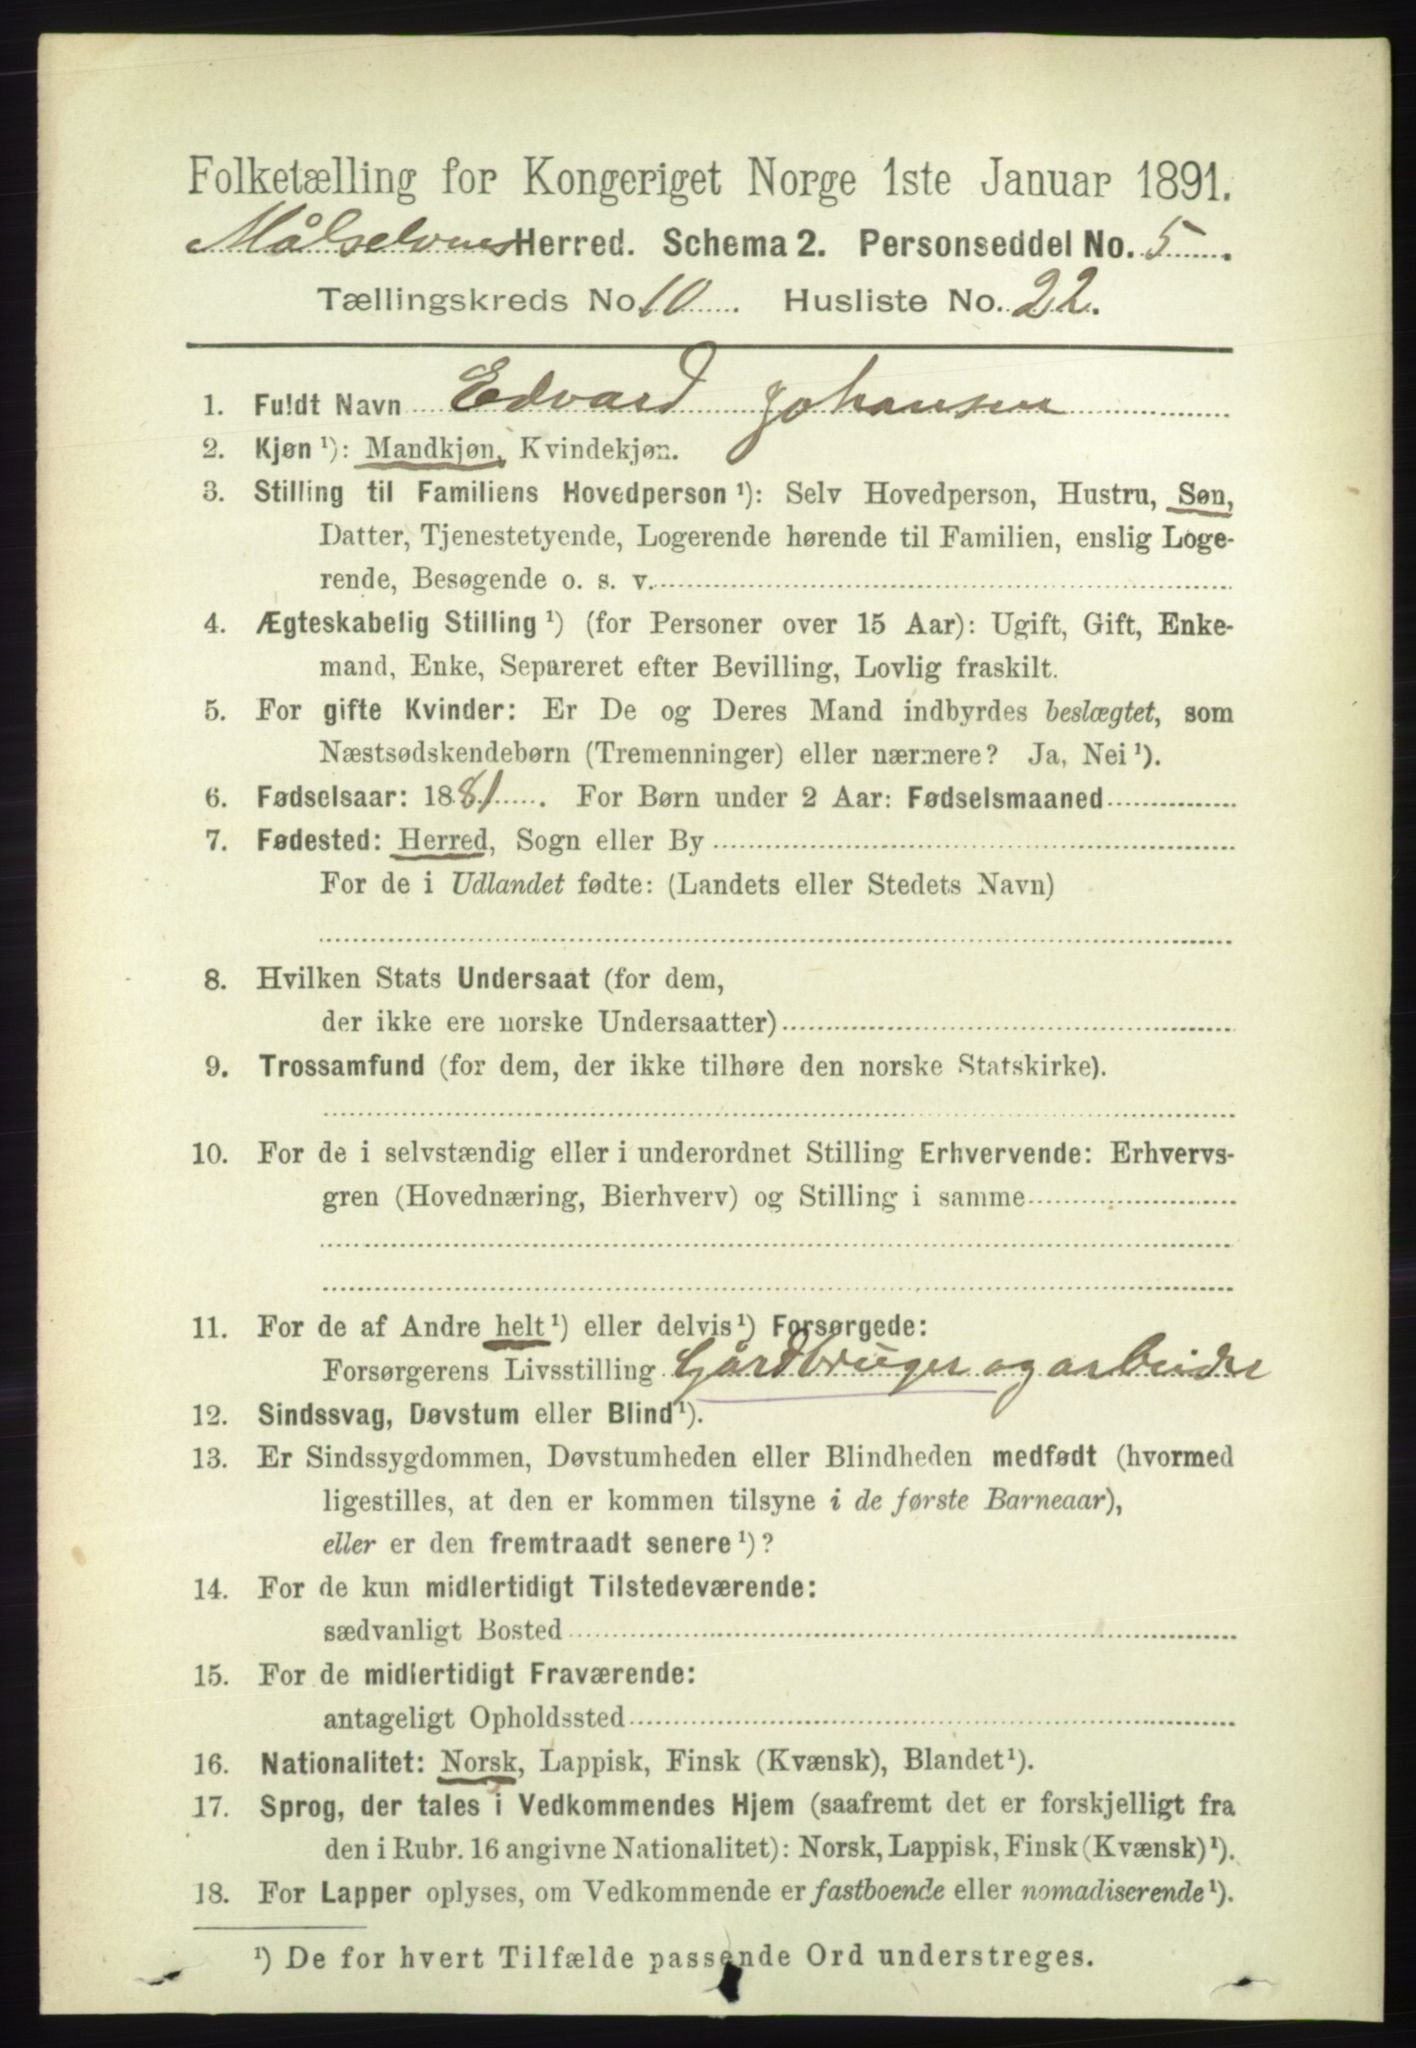 Folketælling for Kongeriget Norge 1ste Januar 1891.
Målselvens Herred. Schema 2. Personseddel No. 5.
Tællingskreds No. 10. Husliste No. 22.
1. Fuldt Navn Edvard Johansen
2. Kjøn ¹): Mandkjøn, Kvindekjøn.
3. Stilling til Familiens Hovedperson ¹): Selv Hovedperson, Hustru, Søn,
Datter, Tjenestetyende, Logerende hørende til Familien, enslig Loge-
rende, Besøgende o. s. v.
4. Ægteskabelig Stilling ¹) (for Personer over 15 Aar): Ugift, Gift, Enke-
mand, Enke, Separeret efter Bevilling, Lovlig fraskilt.
5. For gifte Kvinder: Er De og Deres Mand indbyrdes beslægtet, som
Næstsødskendebørn (Tremenninger) eller nærmere? Ja, Nei ¹).
6. Fødselsaar: 1881. For Børn under 2 Aar: Fødselsmaaned
7. Fødested: Herred, Sogn eller By
For de i Udlandet fødte: (Landets eller Stedets Navn)
8. Hvilken Stats Undersaat (for dem,
der ikke ere norske Undersaatter)
9. Trossamfund (for dem, der ikke tilhøre den norske Statskirke).
10. For de i selvstændig eller i underordnet Stilling Erhvervende: Erhvervs-
gren (Hovednæring, Bierhverv) og Stilling i samme
11. For de af Andre helt ¹) eller delvis ¹) Forsørgede:
Forsørgerens Livsstilling Gårdbruger og arbeider
12. Sindssvag, Døvstum eller Blind ¹).
13. Er Sindssygdommen, Døvstumheden eller Blindheden medfødt (hvormed
ligestilles, at den er kommen tilsyne i de første Barneaar),
eller er den fremtraadt senere ¹)?
14. For de kun midlertidigt Tilstedeværende:
sædvanligt Bosted
15. For de midlertidigt Fraværende:
antageligt Opholdssted
16. Nationalitet: Norsk, Lappisk, Finsk (Kvænsk), Blandet ¹).
17. Sprog, der tales i Vedkommendes Hjem (saafremt det er forskjelligt fra
den i Rubr. 16 angivne Nationalitet): Norsk, Lappisk, Finsk (Kvænsk) ¹).
18. For Lapper oplyses, om Vedkommende er fastboende eller nomadiserende ¹).
¹) De for hvert Tilfælde passende Ord understreges.